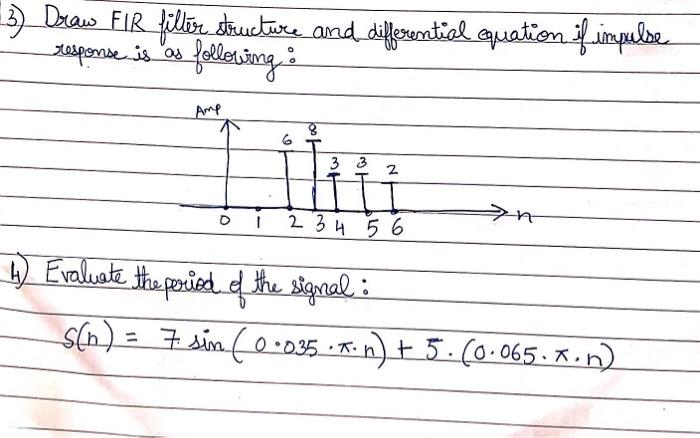 3) Draw FIR filter structure and differential equation if impulse
response is as following :
Amp
6 8 3 3 2
0 1 2 3 4 5 6 n
4) Evaluate the period of the signal :
S(n) = 7. sin ( 0.035 . π. n) + 5. (0.065. π. n)